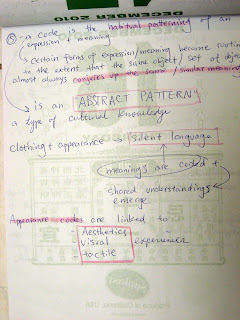 DECEMBER 2010
⑤ - a code is the habitual patterning of an
expression + meaning
↳ Certain forms of expression/meaning become routine
to the extent that the same object / set of objects
almost always conjures up the same / similar meanings
↳ is an "ABSTRACT PATTERN"
a type of cultural knowledge
Clothing + appearance → silent language
meanings are coded +
shared understandings
emerge
Appearance codes are linked to
- Aesthetics
- visual experience
- tactile
Produce of California, USA